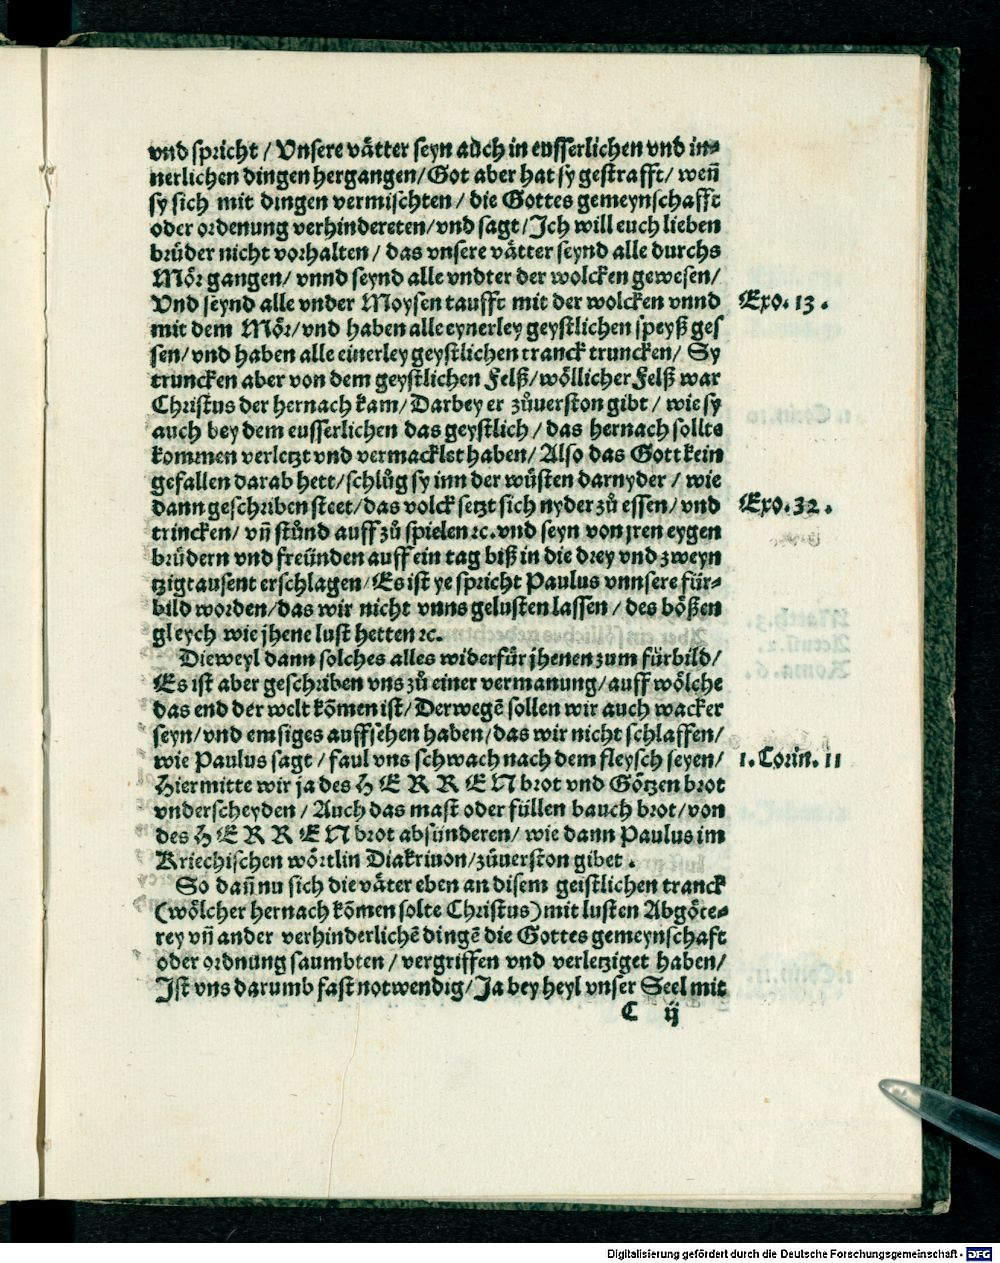 vnd spricht / Vnsere vätter seyn aůch in eusserlichen vnd in⸗
nerlichen dingen hergangen/ Got aber hat sy gestrafft/ weñ
sy sich mit dingen vermischten / die Gottes gemeynschafft
oder ordenung verhindereten/ vnd sagt/ Ich will euch lieben
brüder nicht vorhalten / das vnsere vätter seynd alle durchs
Mör gangen/ vnnd seynd alle vndter der wolcken gewesen/
Vnd seynd alle vnder Moysen taufft mit der wolcken vnnd
Exo. 13.
mit dem Mör/ vnd haben alle eynerley geystlichen speyß ges
sen/ vnd haben alle einerley geystlichen tranck truncken/ Sy
truncken aber von dem geystlichen Felß/ wöllicher Felß war
Christus der hernach kam/ Darbey er zůuerston gibt / wie sy
auch bey dem eusserlichen das geystlich / das hernach sollte
kommen verletzt vnd vermacklet haben/ Also das Gott kein
gefallen darab hett/ schlůg sy inn der wüsten darnyder / wie
dann geschriben steet/ das volck setzt sich nyder zů essen/ vnd
Exo. 32.
trincken/ vñ stůnd auff zů spielen ꝛc. vnd seyn von jren eygen
brüdern vnd freünden auff ein tag biß in die drey vnd zweyn
tzigtausent erschlagen/ Es ist ye spricht Paulus vnnsere für⸗
bild worden/ das wir nicht vnns gelusten lassen / des bößen
gleych wie jhene lust hetten ꝛc.
Dieweyl dann solches alles widerfůr jhenen zum fürbild/
Es ist aber geschriben vns zů einer vermanung/ auff wölche
das end der welt kõmen ist/ Derwegẽ sollen wir auch wacker
seyn/ vnd emsiges auffsehen haben/ das wir nicht schlaffen/
wie Paulus sagt / faul vns schwach nach dem fleysch seyen/
1. Corin. 11
Hiermitte wir ja des HERREN brot vnd Götzen brot
vnderscheyden / Auch das mast oder füllen bauch brot/ von
des HERREN brot absünderen/ wie dann Paulus im
Kriechischen wörtlin Diakrinon/ zůuerston gibet .
So dañ nu sich die väter eben an disem geistlichen tranck
(wölcher hernach kõmen solte Christus) mit lusten Abgöte⸗
rey vñ ander verhinderlichẽ dingẽ die Gottes gemeynschaft
oder ordnung saumbten / vergriffen vnd verletziget haben/
Ist vns darumb fast notwendig/ Ja bey heyl vnser Seel mit
C ij
Digitalisierung gefördert durch die Deutsche Forschungsgemeinschaft - DFG